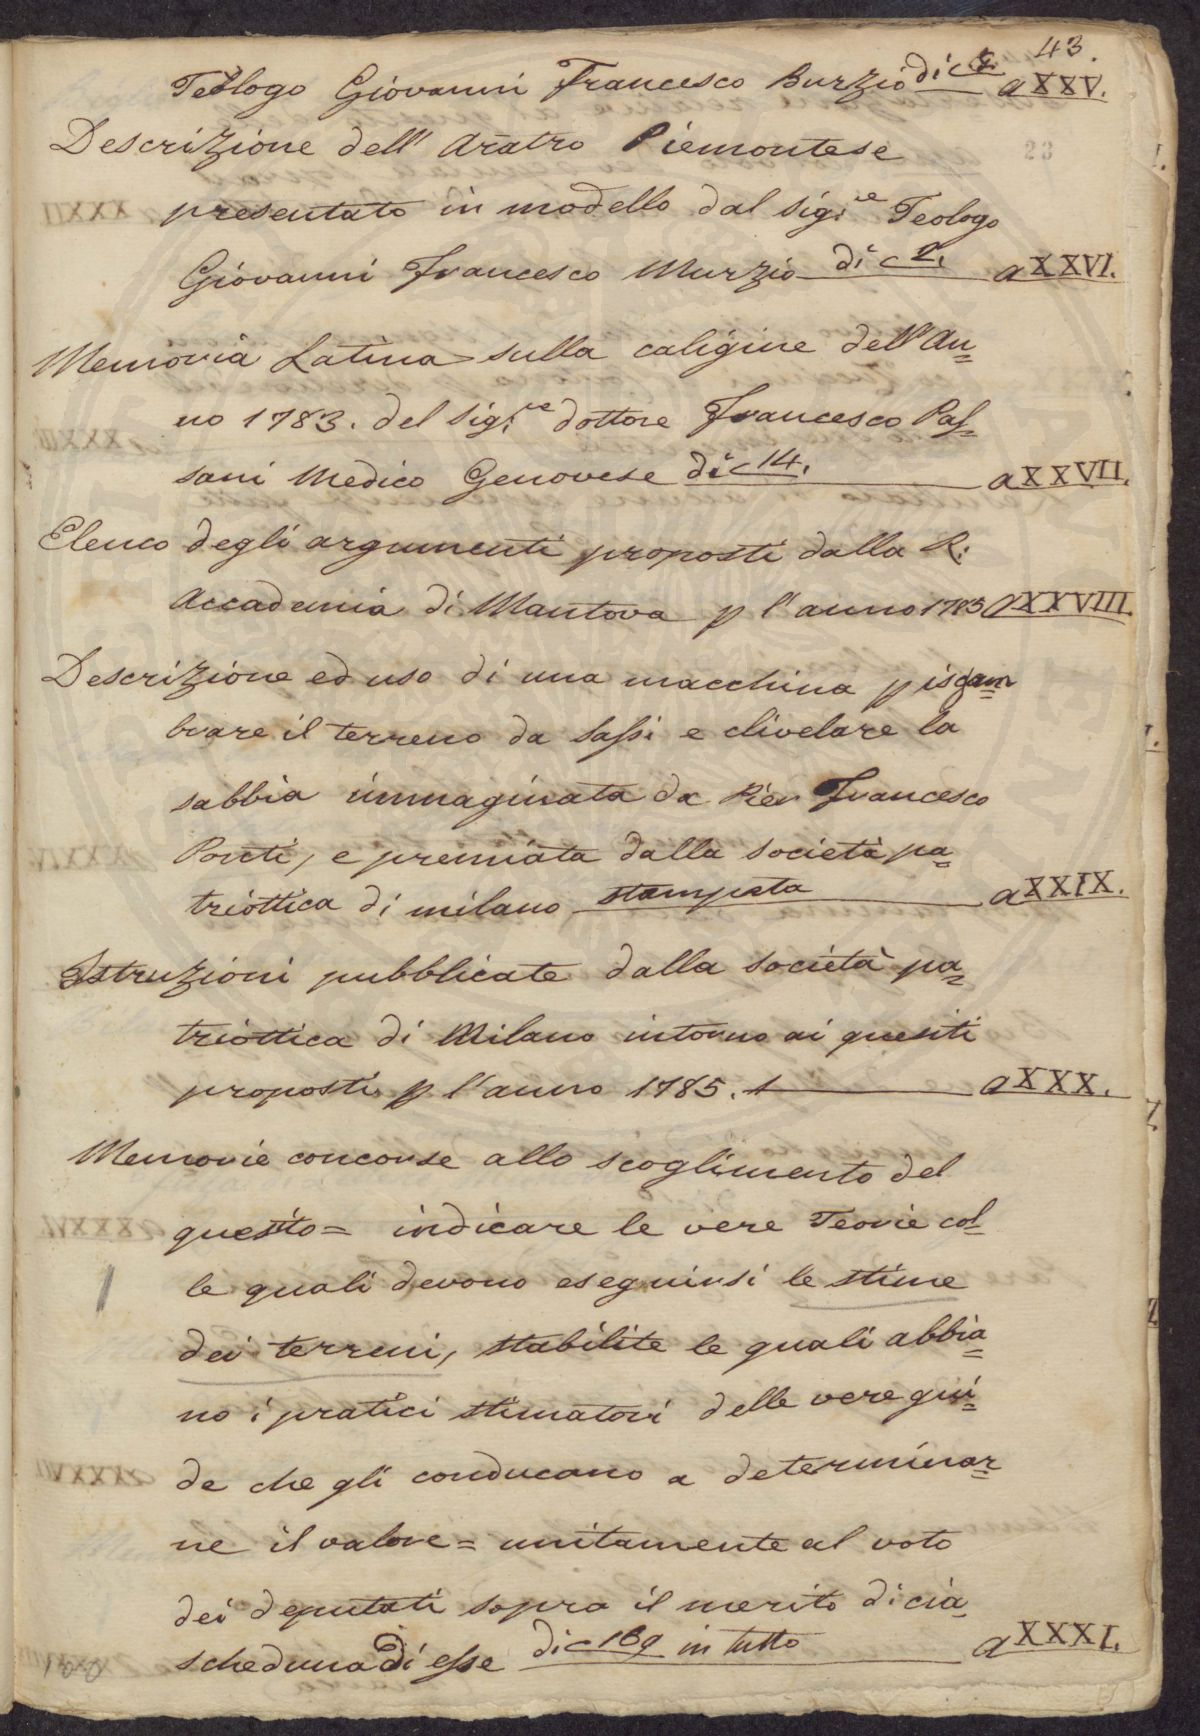 43.
Teologo Giovanni Francesco Burzio di c 8. a XXV.
Descrizione dell' Aratro Piemontese
23
presentato in modello dal Sig:re Teologo
Giovanni Francesco Murzio di c 2. a XXVI.
Memoria Latina sulla caligine dell'An=
no 1783. del Sig:re dottore Francesco Pas=
sani Medico Genovese di c 14. a XXVII.
Elenco degli argumenti proposti dalla R:
Accademia di Mantova p l'anno 1785 a XXVIII.
Descrizione ed uso di una macchina p isgom=
brare il terreno da sassi e clivelare la
sabbia immaginata da Pier Francesco
Ponti, e premiata dalla società pa=
triottica di milano stampata a XXIX.
Istruzioni pubblicate dalla società pa=
triottica di Milano intorno ai quesiti
proposti p l'anno 1785. 1 a XXX.
Memorie concorse allo scoglimento del
quesito = indicare le vere Teorie col=
le quali devono eseguirsi le stime
dei terreni, stabilite le quali abbia=
no i pratici stimatori delle vere gui=
de che gli conducano a determinar=
ne il valore = unitamente al voto
dei deputati sopra il merito di cia=
scheduna di esse di c 169 in tutto a XXXI.